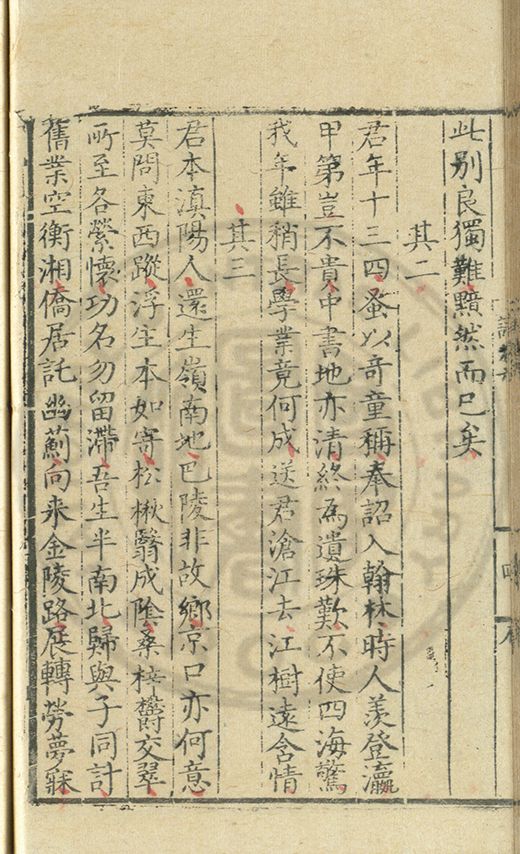 此别良獨難黯然而已矣
其二
君年十三四蚤以奇童稱奉詔入翰林時人羡登瀛
甲第豈不貴中書地亦清終為遺珠歎不使四海驚
我年雖稍長學業竟何成送君滄江去江樹遠含情
其三
君本滇陽人還生嶺南地巴陵非故鄉京口亦何意
莫問東西蹤浮生本如寄松楸翳成陰桑梓欝交翠
所至各縈懷功名勿留滯吾生半南北歸與子同計
舊業空衡湘僑居託幽薊向来金陵路展轉勞夢寐